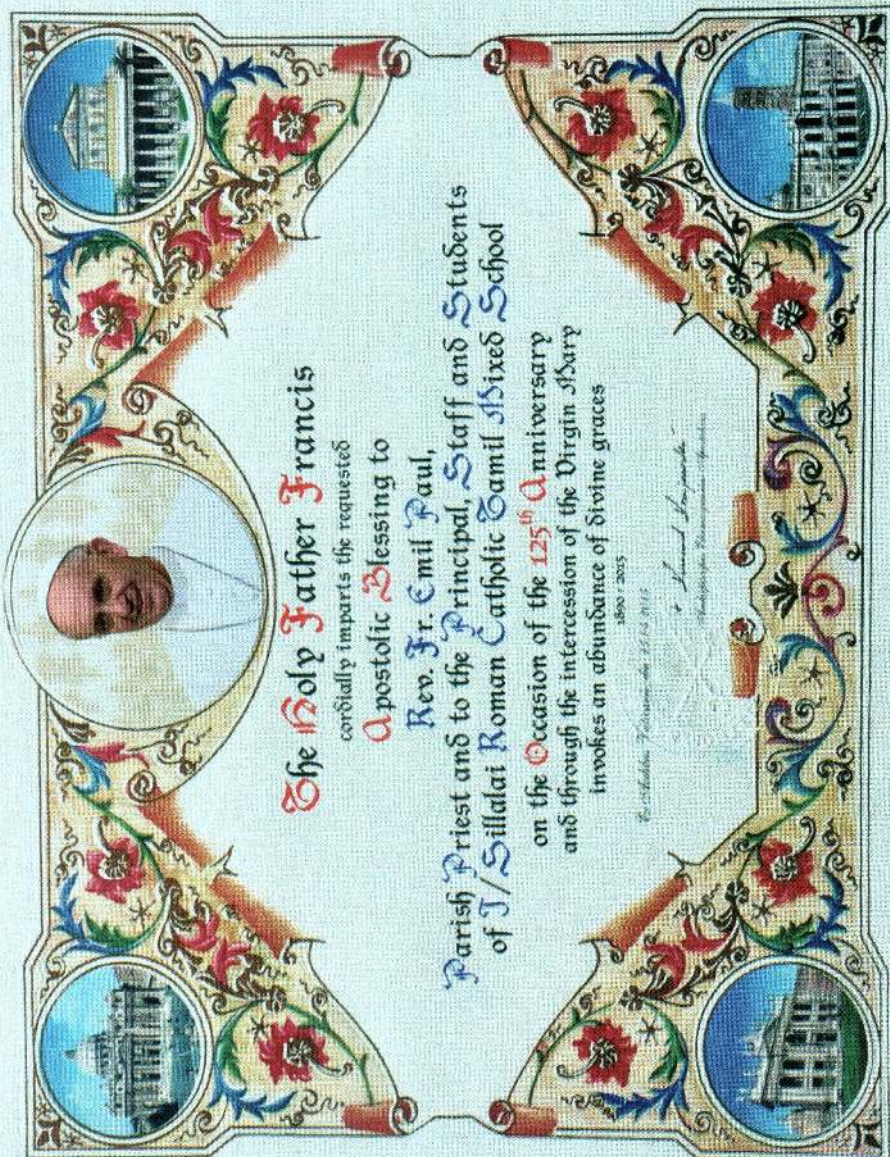 The Holy Father Francis
cordially imparts the requested
Apostolic Blessing to
Rev. Fr. Emil Paul,
Parish Priest and to the Principal, Staff and Students
of J/Sillalai Roman Catholic Tamil Mixed School
on the Occasion of the 125th Anniversary
and through the intercession of the Virgin Mary
invokes an abundance of divine graces
1890 - 2015